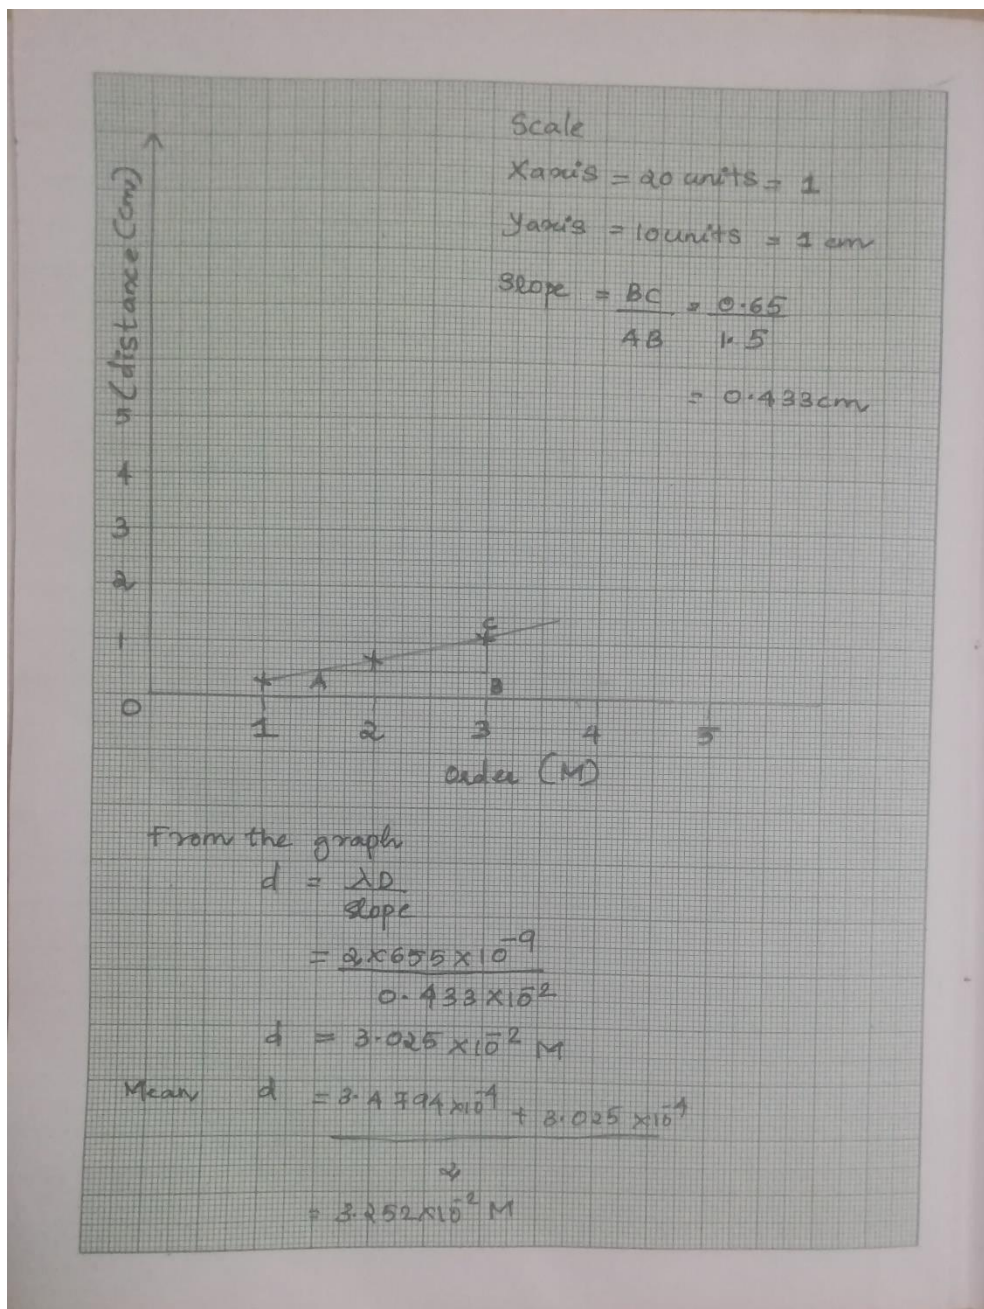 Scale
X axis = 20 units = 1
Y axis = 10 units = 1 cm
Slope = BC / AB = 0.65 / 1.5
= 0.433cm
(distance (cm)
5
4
3
2
1
0
A
C
B
1 2 3 4 5
Order (M)
From the graph
d = λD / slope
= 2×655×10⁻⁹ / 0.433×10⁻²
d = 3.025×10⁻² M
Mean d = 3.4794×10⁻⁴ + 3.025×10⁻⁴
2
= 3.252×10⁻² M